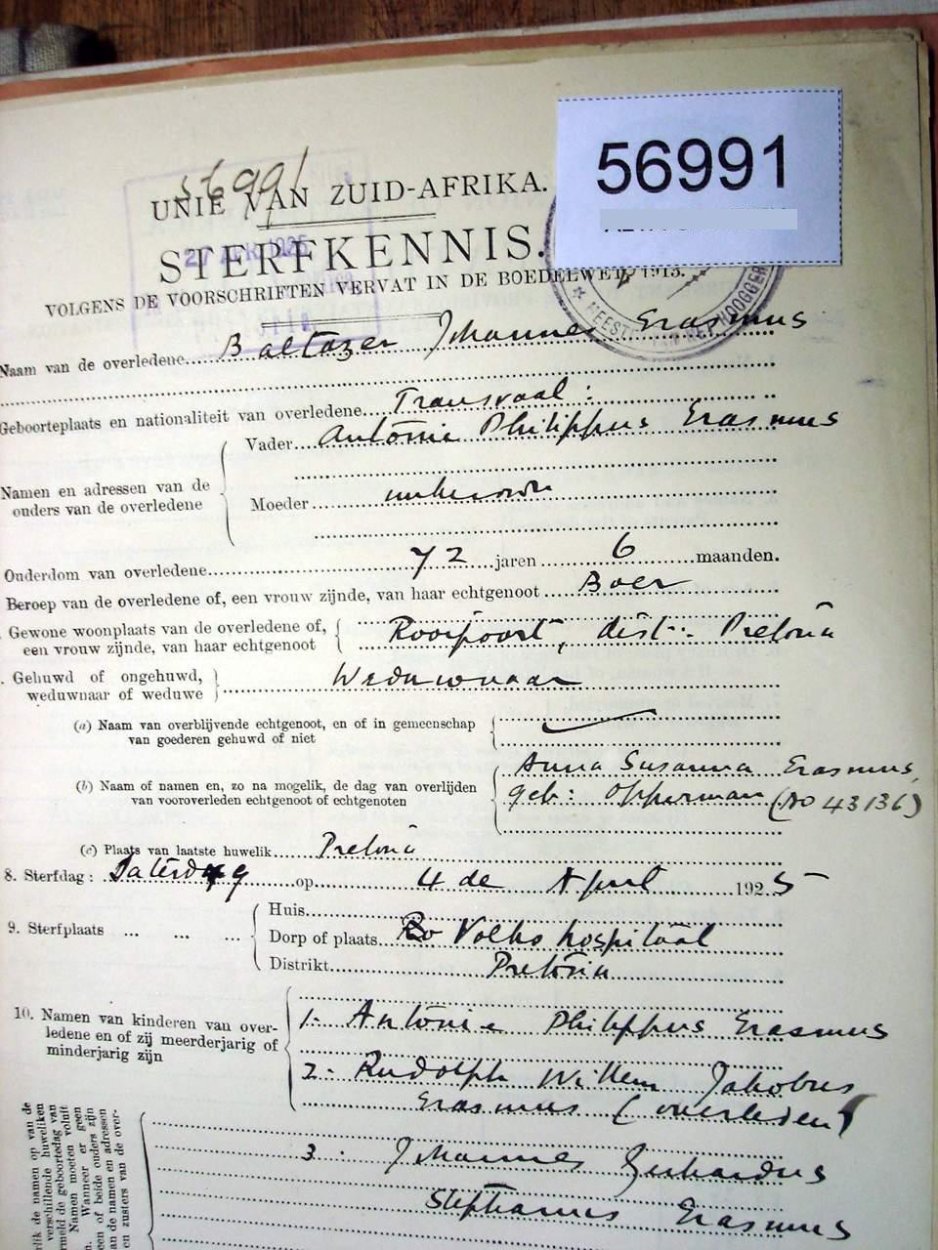 56991
56991
UNIE VAN ZUID-AFRIKA.
STERFKENNIS.
VOLGENS DE VOORSCHRIFTEN VERVAT IN DE BOEDELWET, 1913.
Naam van de overledene Baltazer Johannes Erasmus
Geboorteplaats en nationaliteit van overledene Transvaal:
Namen en adressen van de ouders van de overledene
Vader Antonie Philippus Erasmus
Moeder unknown
Onderdom van overledene 72 jaren 6 maanden.
Beroep van de overledene of, een vrouw zijnde, van haar echtgenoot Boer
Gewone woonplaats van de overledene of,
een vrouw zijnde, van haar echtgenoot
Rooipoort, dist: Pretoria
Gehuwd of ongehuwd,
weduwnaar of weduwe
Weduwnaar
(a) Naam van overblijvende echtgenoot, en of in gemeenschap
van goederen gehuwd of niet
(b) Naam of namen en, zo na mogelik, de dag van overlijden
van vooroverleden echtgenoot of echtgenoten
Anna Susanna Erasmus,
geb: Opperman (No 43136)
(c) Plaats van laatste huwelik Pretoria
8. Sterfdag: Saterdag op 4 de April 1925
9. Sterfplaats
Huis
Dorp of plaats Volks hospitaal
Distrikt Pretoria
10. Namen van kinderen van over-
ledene en of zij meerderjarig of
minderjarig zijn
1. Antonie Philippus Erasmus
2. Rudolph Willem Jakobus
Erasmus (overleden)
3. Johannes Gerhardus
Stephanus Erasmus